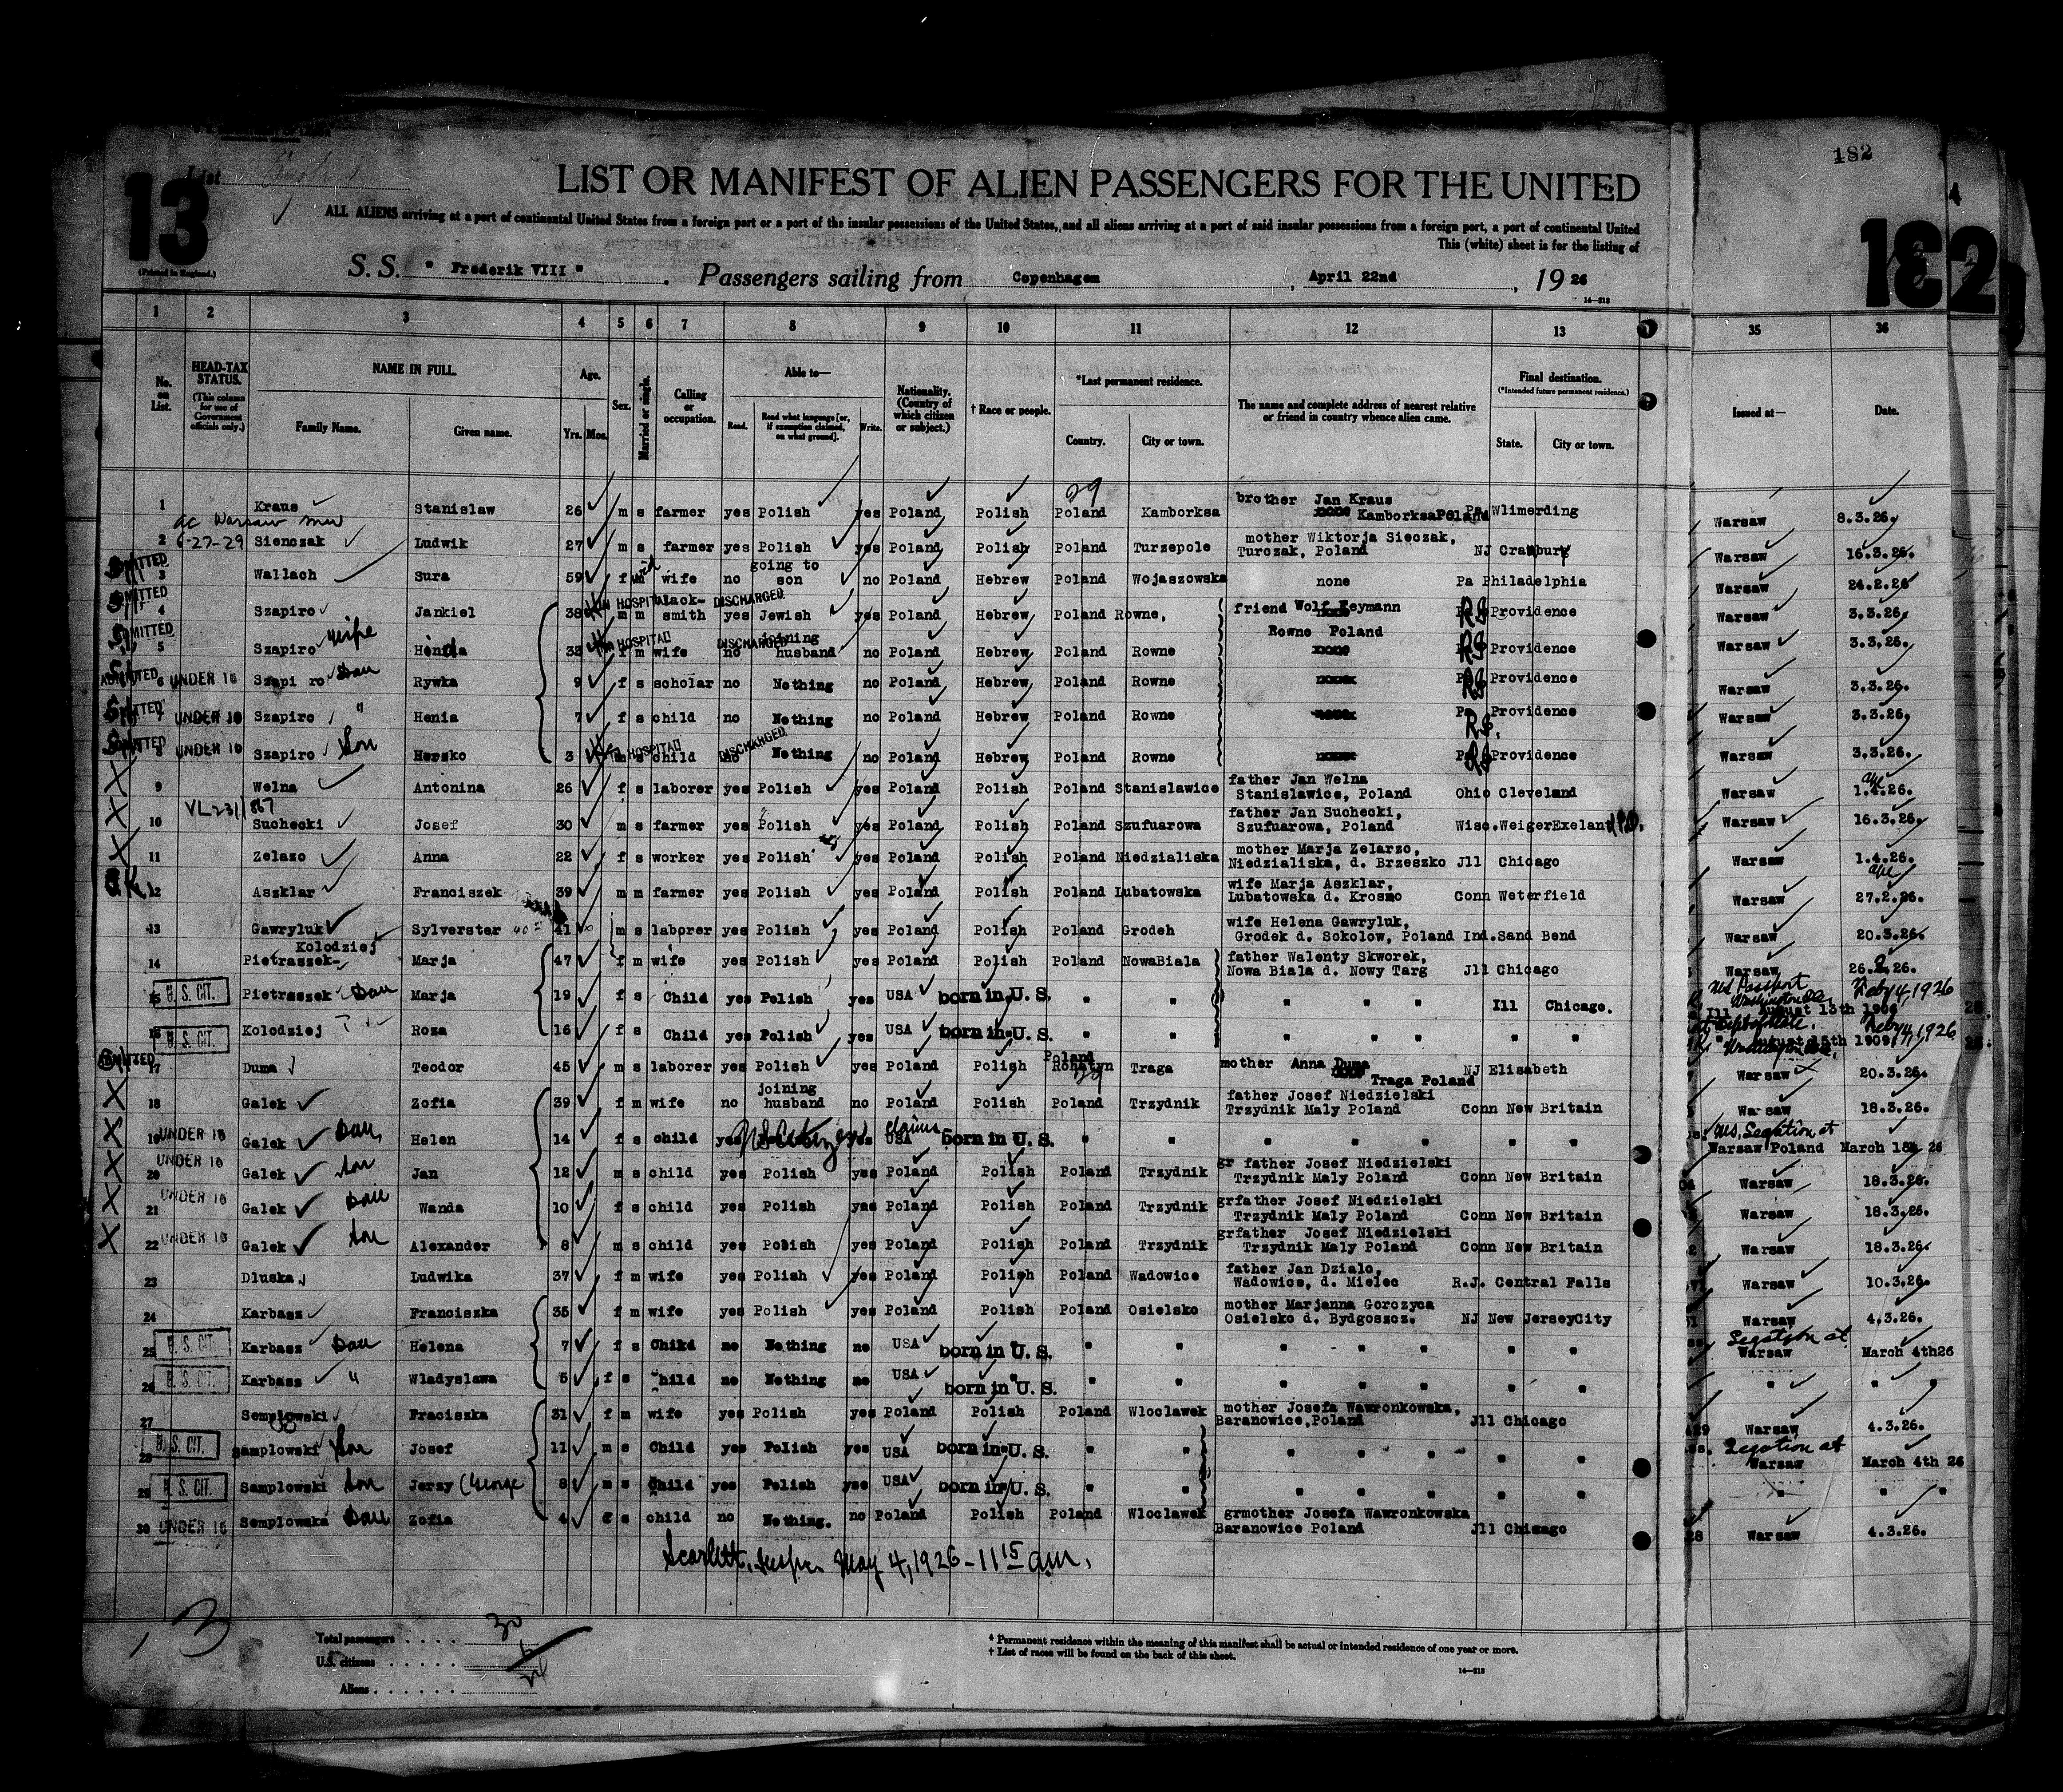 182
List
13
(Printed in England.)
LIST OR MANIFEST OF ALIEN PASSENGERS FOR THE UNITED
182
ALL ALIENS arriving at a port of continental United States from a foreign port or a port of the insular possessions of the United States, and all aliens arriving at a port of said insular possessions from a foreign port, a port of continental United
This (white) sheet is for the listing of
S. S. " Frederik VIII " . Passengers sailing from Copenhagen , April 22nd , 19 26
14—213
1 2 3 4 5 6 7 8 9 10 11 12 13 35 36
No. on List. HEAD-TAX STATUS. (This column for use of Government officials only.) NAME IN FULL. Family Name. Given name. Age. Yrs. Mos. Sex. Married or single. Calling or occupation. Able to— Read. Read what language [or, if exemption claimed, on what ground]. Write. Nationality. (Country of which citizen or subject.) † Race or people. *Last permanent residence. Country. City or town. The name and complete address of nearest relative or friend in country whence alien came. Final destination. (*Intended future permanent residence.) State. City or town. Issued at— Date.
29
1 Kraus Stanislaw 26 m s farmer yes Polish yes Poland Polish Poland Kamborksa brother Jan Kraus none Kamborksa Poland Pa Wlimerding Warsaw 8.3.26.
6-27-29
2 Sienczak Ludwik 27 m s farmer yes Polish yes Poland Polish Poland Turzepole mother Wiktorja Sieczak, Turczak, Poland NJ Cranbury Warsaw 16.3.26.
3 Wallach Sura 59 f wid wife no going to son no Poland Hebrew Poland Wojaszowska none Pa Philadelphia Warsaw 24.2.26
ADMITTED 4 Szapiro Jankiel 38 IN HOSPITAL DISCHARGED m m black-smith yes Jewish yes Poland Hebrew Poland Rowne, friend Wolf Feymann RI Providence Warsaw 3.3.26.
ADMITTED 5 Szapiro wife Henda 33 IN HOSPITAL DISCHARGED f m wife no joining husband no Poland Hebrew Poland Rowne Rowne Poland none RI Providence Warsaw 3.3.26.
ADMITTED 6 UNDER 16 Szapiro Dau Rywka 9 f s scholar no Nothing no Poland Hebrew Poland Rowne none RI Providence Warsaw 3.3.26.
ADMITTED 7 UNDER 16 Szapiro " Henia 7 f s child no Nothing no Poland Hebrew Poland Rowne none RI. Providence Warsaw 3.3.26.
ADMITTED 8 UNDER 16 Szapiro Son Hersko 3 IN HOSPITAL DISCHARGED m s child no Nothing no Poland Hebrew Poland Rowne none RI Providence Warsaw 3.3.26.
X 9 Welna Antonina 26 f s laborer yes Polish yes Poland Polish Poland Stanislawice father Jan Welna Stanislawice, Poland Ohio Cleveland Warsaw 1.4.26.
X 10 Suchecki Josef 30 m s farmer yes Polish yes Poland Polish Poland Szufuarowa father Jan Suchecki, Szufuarowa, Poland Wisc. Weiger Exeland Warsaw 16.3.26.
X 11 Zelazo Anna 22 f s worker yes Polish yes Poland Polish Poland Niedzialiska mother Marja Zelarzo, Niedzialiska, d. Brzeszko Jll Chicago Warsaw 1.4.26.
12 Aszklar Franciszek 39 m m farmer yes Polish yes Poland Polish Poland Lubatowska wife Marja Aszklar, Lubatowska d. Krosno Conn Weterfield Warsaw 27.2.26.
13 Gawryluk Sylverster 41 m s laborer yes Polish yes Poland Polish Poland Grodeh wife Helena Gawryluk, Grodek d. Sokolow, Poland Ind. Sand Bend Warsaw 20.3.26.
14 Kolodziej Pietraszek- Marja 47 f m wife yes Polish yes Poland Polish Poland NowaBiala father Walenty Skworek, Nowa Biala d. Nowy Targ Jll Chicago Warsaw 26.2.26.
15 U. S. CIT. Pietraszek Dau Marja 19 f s Child yes Polish yes USA born in U. S. " " " " " " Ill Chicago. US Passport Washington DC Feby 4, 1926
16 U. S. CIT. Kolodziej Roza 16 f s Child yes Polish yes USA born in U. S. " " " " " " " " August 15th 1909 Feby 4, 1926
17 Duma Teodor 45 m s laborer yes Polish yes Poland Polish Poland Rohatyn Traga mother Anna Duma Traga Poland NJ Elisabeth Warsaw 20.3.26.
X 18 Galek Zofia 39 f m wife no joining husband no Poland Polish Poland Trzydnik father Josef Niedzielski Trzydnik Maly Poland Conn New Britain Warsaw 18.3.26.
X 19 UNDER 16 Galek Dau, Helen 14 f s child yes US Citizen yes claims USA born in U. S. " " " " " " " " US. Legation at Warsaw Poland March 18th 26
X 20 UNDER 16 Galek Son Jan 12 m s child yes Polish yes Poland Polish Poland Trzydnik gr father Josef Niedzielski Trzydnik Maly Poland Conn New Britain Warsaw 18.3.26.
X 21 UNDER 16 Galek Dau Wanda 10 f s child yes Polish yes Poland Polish Poland Trzydnik grfather Josef Niedzielski Trzydnik Maly Poland Conn New Britain Warsaw 18.3.26.
X 22 UNDER 16 Galek Son Alexander 8 m s child yes Polish yes Poland Polish Poland Trzydnik grfather Josef Niedzielski Trzydnik Maly Poland Conn New Britain Warsaw 18.3.26.
23 Dluska Ludwika 37 f m wife yes Polish yes Poland Polish Poland Wadowice father Jan Dzialo, Wadowice, d. Mielec R.J. Central Falls Warsaw 10.3.26.
24 Karbasz Franciszka 35 f m wife yes Polish yes Poland Polish Poland Osielsko mother Marjanna Gorczyca Osielsko d. Bydgoszcz. NJ New JerseyCity Warsaw 4.3.26.
25 U. S. CIT. Karbasz Dau Helena 7 f s Child no Nothing no USA born in U. S. " " " " " " " " Legation at Warsaw March 4th26
26 U. S. CIT. Karbasz " Wladyslawa 5 f s Child no Nothing no USA born in U. S. " " " " " " " " " " " "
27 Semplowski Fraciszka 31 f m wife yes Polish yes Poland Polish Poland Wloclawek mother Josefa Wawronkowska, Baranowice, Poland Jll Chicago Warsaw 4.3.26.
28 U. S. CIT. Samplowski Son Josef 11 m s Child yes Polish yes USA born in U. S. " " " " " " " " Legation at Warsaw March 4th 26
29 U. S. CIT. Samplowski Son Jerzy (George 8 m s Child yes Polish yes USA born in U. S. " " " " " " " " " " "
30 UNDER 16 Semplowska Dau Zofia 4 f s child no Nothing. no Poland Polish Poland Wloclawek grmother Josefa Wawronkowska Baranowice Poland Jll Chicago Warsaw 4.3.26.
Scarlett, Inspr. May 4, 1926 - 11 15 am.
13
Total passengers . . . . 30
U.S. citizens . . . . . . 6
Aliens . . . . . . 24
* Permanent residence within the meaning of this manifest shall be actual or intended residence of one year or more.
† List of races will be found on the back of this sheet.
14—213